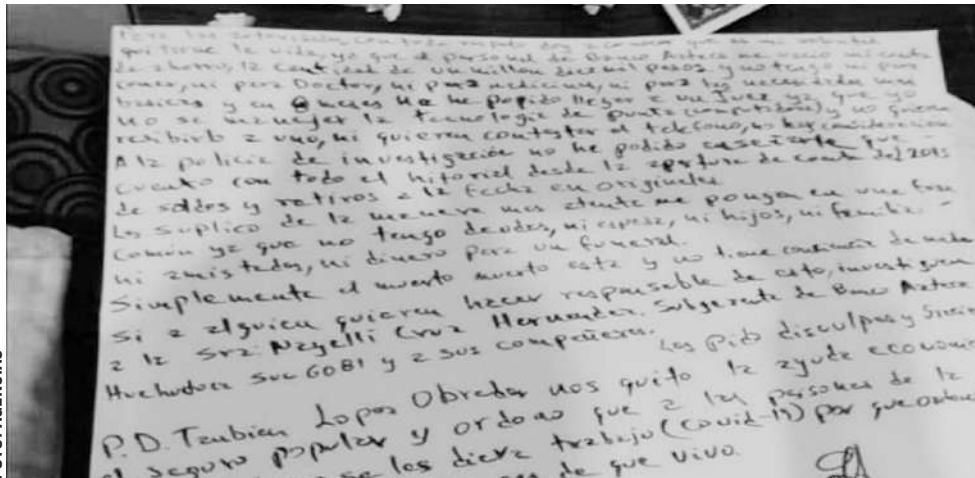 Para las autoridades, con todo respeto doy a conocer que es mi voluntad
quitarme la vida, ya que el personal de Banco Azteca me vacio mi cuenta
de ahorro, la cantidad de un millon doce mil pesos y no tengo ni para
comer, ni para Doctor, ni para medicina, ni para las necesidades mas
basicas y en meses no he podido llegar a un juez ya que yo
no se manejar la tecnologia de punta (computadora) y no quieren
resibirlo a uno, ni quieren contestar el telefono, no hay consideracion
A la policia de investigación no he podido enseñarle que
cuento con todo el hitorial desde la apertura de cuenta del 2015
de saldos y retiros a la fecha en originales
Les suplico de la manera mas atenta me pongan en una fosa
común ya que no tengo deudos, ni esposa, ni hijos, ni familia
ni amistades, ni dinero para un funeral.
Simplemente el muerto muerto esta y no tiene conciencia de nada
si a alguien quieren hacer responsable de esto, investiguen
a la Sra. Nayelli Cruz Hernandez. Subgerente de Banco Azteca
Huehuetoca Suc 6081 y a sus compañeros.
Les Pido disculpas y
P.D. Tanbien Lopez Obrador nos quito la ayuda economica
el seguro popular y ordeno que a las personas de la
se les diera trabajo (Covid-19) por que
de que vivo.